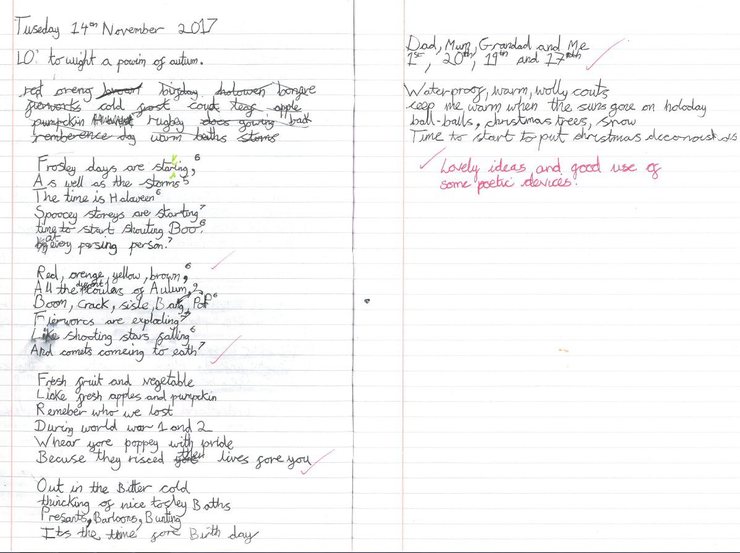 Tuseday 14th November 2017
LO: to wright a powim of autum.
red oreng brown birgday halowen bongire
fierworks cold frost coud teay apple
pumpckin Hawnut rugby does gowing back
remberence day warm baths storms
Frosley days are staring,6
As well as the storms5
The time is Halaween6
Spoocey storeys are starting7
time to start shouting Boo!
at every parsing person.7
Red, orenge, yellow, brown,6
All the difrent coulers of Autum,?
Boon, Crack, sisle, Bang, PoP6
Fierworcs are exploding7
Like shooting stars falling6
And comets comeing to eath7
Fresh fruit and vegetable
Licke fresh apples and pumpckin
Remeber who we lost
During world war 1 and 2
Whear yore poppey with pride
Becuse they risced ther lives fore you
Out in the Bitter cold
thincking of nice tosley Baths
Presants, Barloons, Bunting
Its the time fore Birth day
Dad, Mum, Grandad and Me
1st, 20th, 19th and 17nth
Waterproof, warm, wolly couts
ceep me warm when the suns gore on holoday
ball-balls, christmas trees, snow
Time to start to put christmas
Lovely ideas and good use of
some poetic devices!